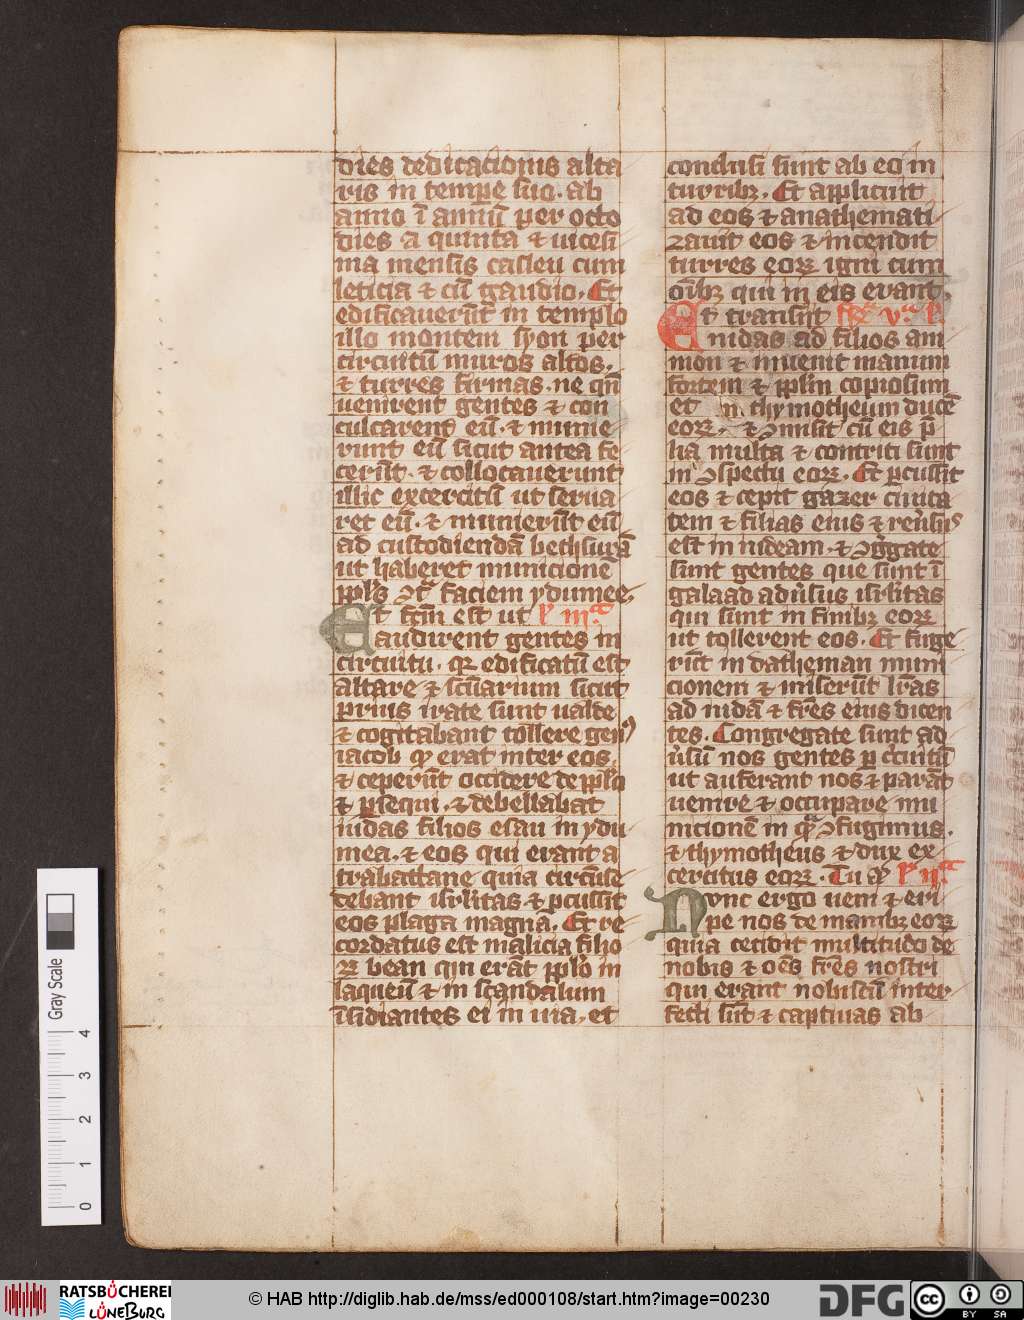 dies dedicacionis alta
ris in tempe suo. ab
anno ī annū per octo
dies a quinta ⁊ uicesi
ma mensis casleu cum
leticia ⁊ cū gaudio. Et
edificauerūt in templo
illo montem syon per
circuitū muros altos.
⁊ turres firmas. ne qn̄
uenirent gentes ⁊ con
culcarent eū. ⁊ munie
runt eū sicut antea fe
cerūt. ⁊ collocauerunt
illic excercitū ut serua
ret eū. ⁊ munierūt eū
ad custodiendā bethsurā
ut haberet municionē
ppl̓s ꝯtᷓ faciem ydumee
Et fc̄m est ut l' iiiᵃ
audirent gentes in
circuitu. qꝛ edificatū est
altare ⁊ scūarium sicut
prius irate sunt ualde
⁊ cogitabant tollere genꝰ
iacob qͥ erat inter eos.
⁊ ceperūt occidere de ppl̓o
⁊ ꝑsequi. ⁊ debellabat
iudas filios esau in ydu
mea. ⁊ eos qui erant a
trabattane quia circūse
debant isrl̓itas ⁊ ꝑcussit
eos plaga magnā. Et re
cordatus est malicia filio
ꝝ bean qui erāt ppl̓o in
laqueū ⁊ in scandalum
īsidiantes ei in uia. et
conclusi sunt ab eo in
turribꝫ. Et applicuit
ad eos ⁊ anathemati
zauit eos ⁊ incendit
turres eoꝝ igni cum
oībꝫ qui in eis erant.
Et transiit vᵃ l'
iudas ad filios am
mon ⁊ inuenit manum
fortem ⁊ ppl̓m copiosum
et thymotheum ducē
eoꝝ. ⁊ ꝯmisit cū eis p̄
lia multa ⁊ contriti sunt
in ꝯspectu eoꝝ. Et ꝑcussit
eos ⁊ cepit gazer ciuita
tem ⁊ filias eius ⁊ reūsꝰ
est in iudeam. ⁊ ꝯgͥgate
sunt gentes que sunt ī
galaad aduͥsus isrl̓itas
qui sunt in finibꝫ eoꝝ
ut tollerent eos. Et fuge
rūt in datheman muni
cionem ⁊ miserūt lr̄as
ad iudā ⁊ fr̄es eius dicen
tes. Congregate sunt ad
uͥsū nos gentes ꝑ circuitū
ut auferant nos ⁊ parāt
uenire ⁊ occupare mu
nicionē in quā ꝯfugimus.
⁊ thymotheus ⁊ dux ex
cercitus eoꝝ. Tu l' iiᵃ
Nunc ergo ueni ⁊ eri
pe nos de manibꝫ eoꝝ
quia cecidit multitudo de
nobis ⁊ oēs fr̄es nostri
qui erant nobiscū inter
fecti sūt ⁊ captiuas ab
Gray Scale
0 1 2 3 4
RATSBÜCHEREI LÜNEBURG
© HAB http://diglib.hab.de/mss/ed000108/start.htm?image=00230
DFG
cc BY SA